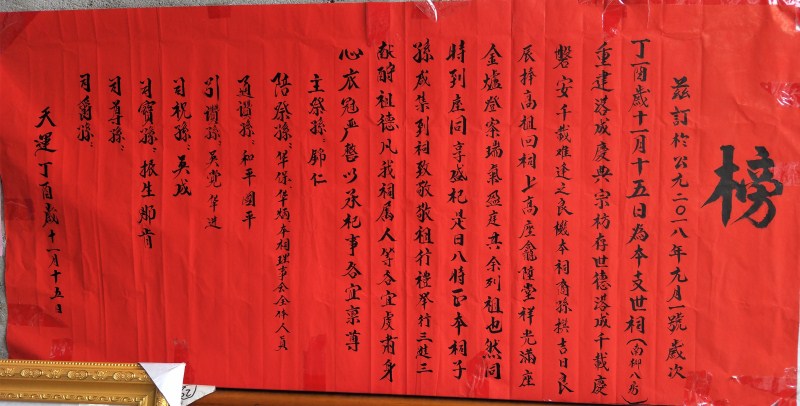 榜
茲訂於公元二〇一八年元月一號歲次
丁酉歲十一月十五日為本支世祠(南柳八房)
重建落成慶典宗枋存世德落成千載慶
磐安千載难逢之良機本祠裔孫撰吉日良
辰捧高祖回祠上高座龕陞堂祥光滿座
金爐登案瑞氣盈庭其余列祖也然同
時列座同享盛祀是日八時正本祠子
孫咸集到祠致敬敬祖行禮举行三献三
献酧祖德凡我祠属人等各宜虔肅身
心衣冠严整以承祀事各宜禀尊
主祭孫：郭仁
陪祭孫：華保華炳本祠理事会全体人員
通讚孫：和平國平
引讚孫：英党華進
司祝孫：英成
司寶孫：振生那肯
司尊孫：
司爵孫：
天運丁酉歲十一月十五日